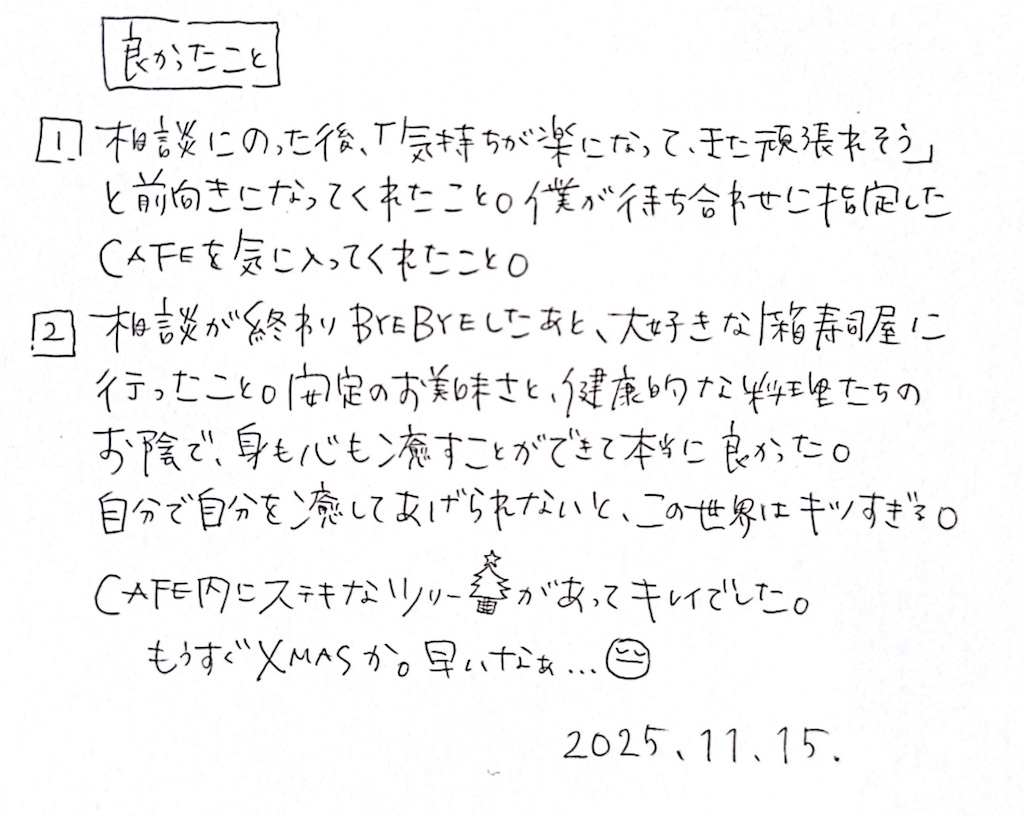 良かったこと
1 相談にのった後、「気持ちが楽になって、また頑張れそう」
と前向きになってくれたこと。僕が待ち合わせに指定した
CAFEを気に入ってくれたこと。
2 相談が終わりBYEBYEしたあと、大好きな箱寿司屋に
行ったこと。安定のお美味さと、健康的な料理たちの
お陰で、身も心も癒すことができて本当に良かった。
自分で自分を癒してあげられないと、この世界はキツすぎる。
CAFE内にステキなツリーがあってキレイでした。
もうすぐXMASか。早いなぁ...
2025.11.15.